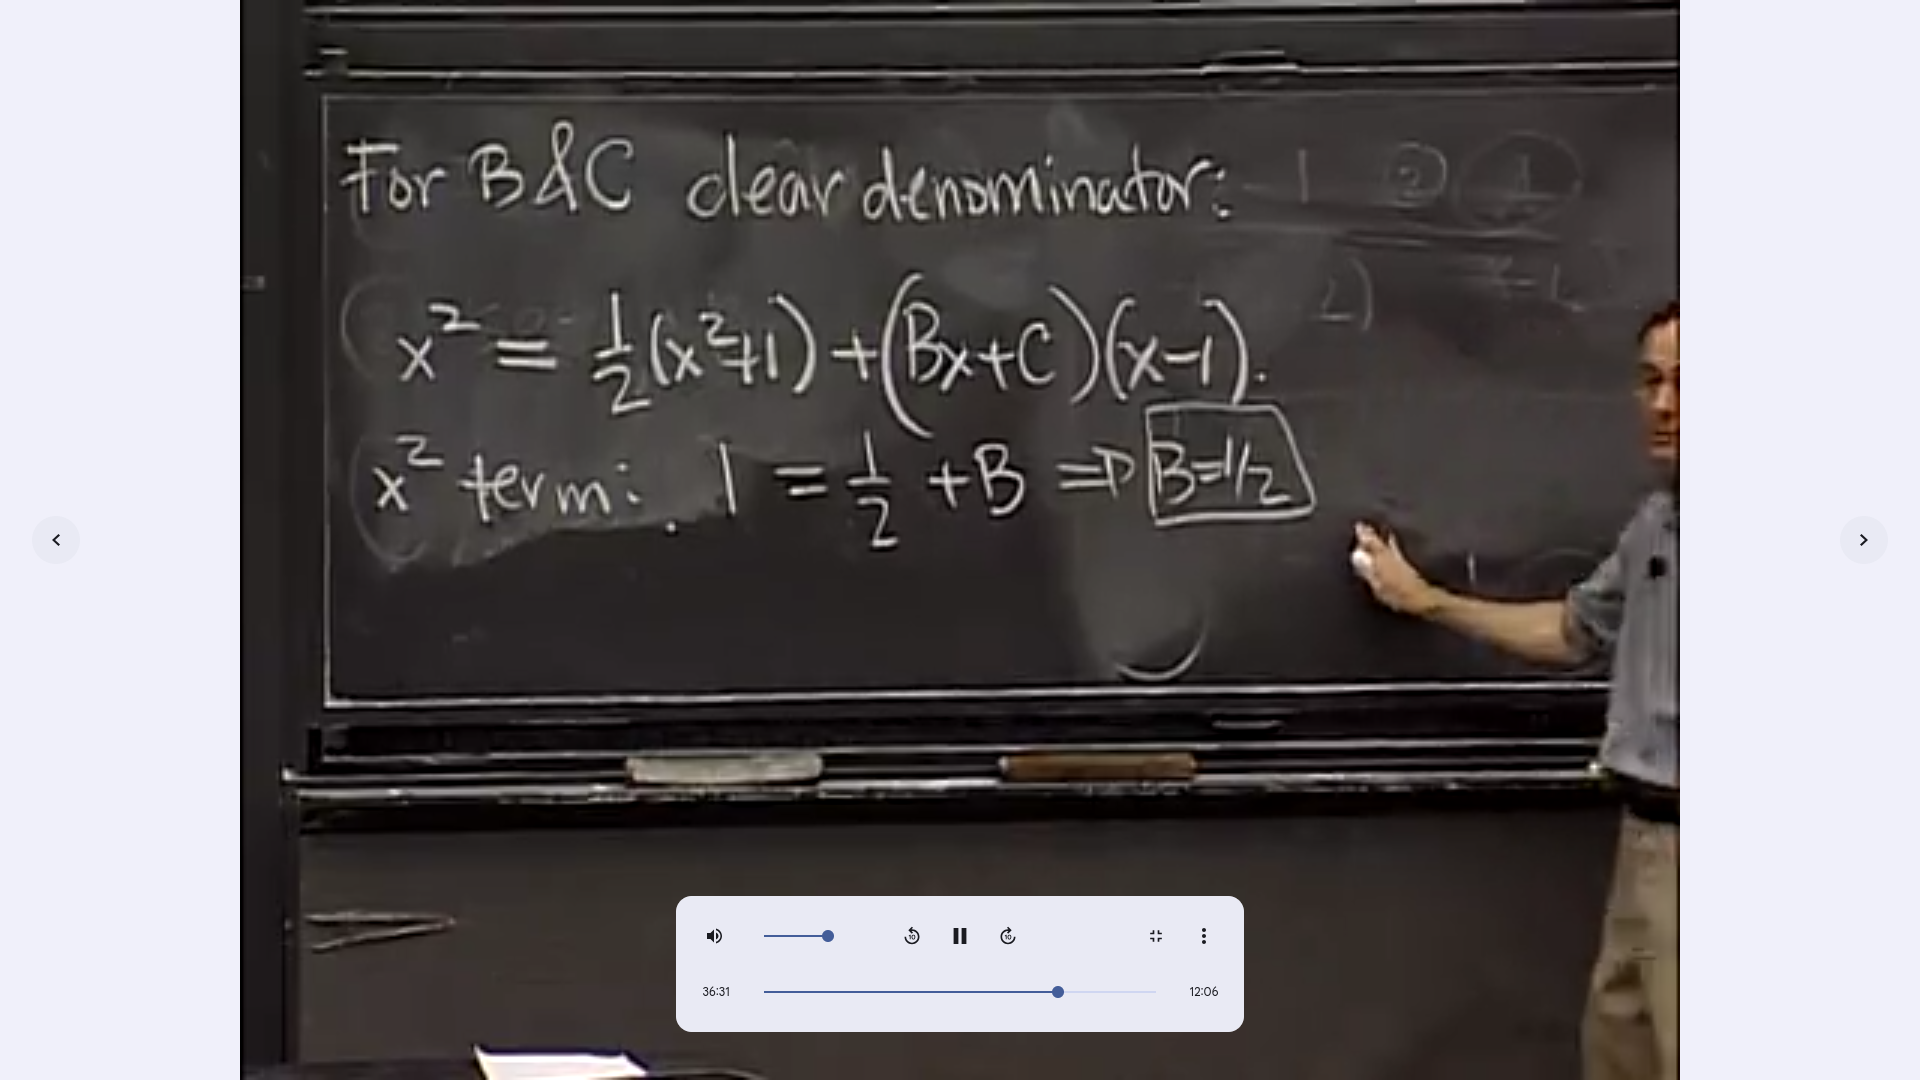 For B & C clear denominator:
x² = 1/2 (x²+1) + (Bx+C)(x-1).
x² term: 1 = 1/2 + B ⇒ B=1/2
36:31
12:06